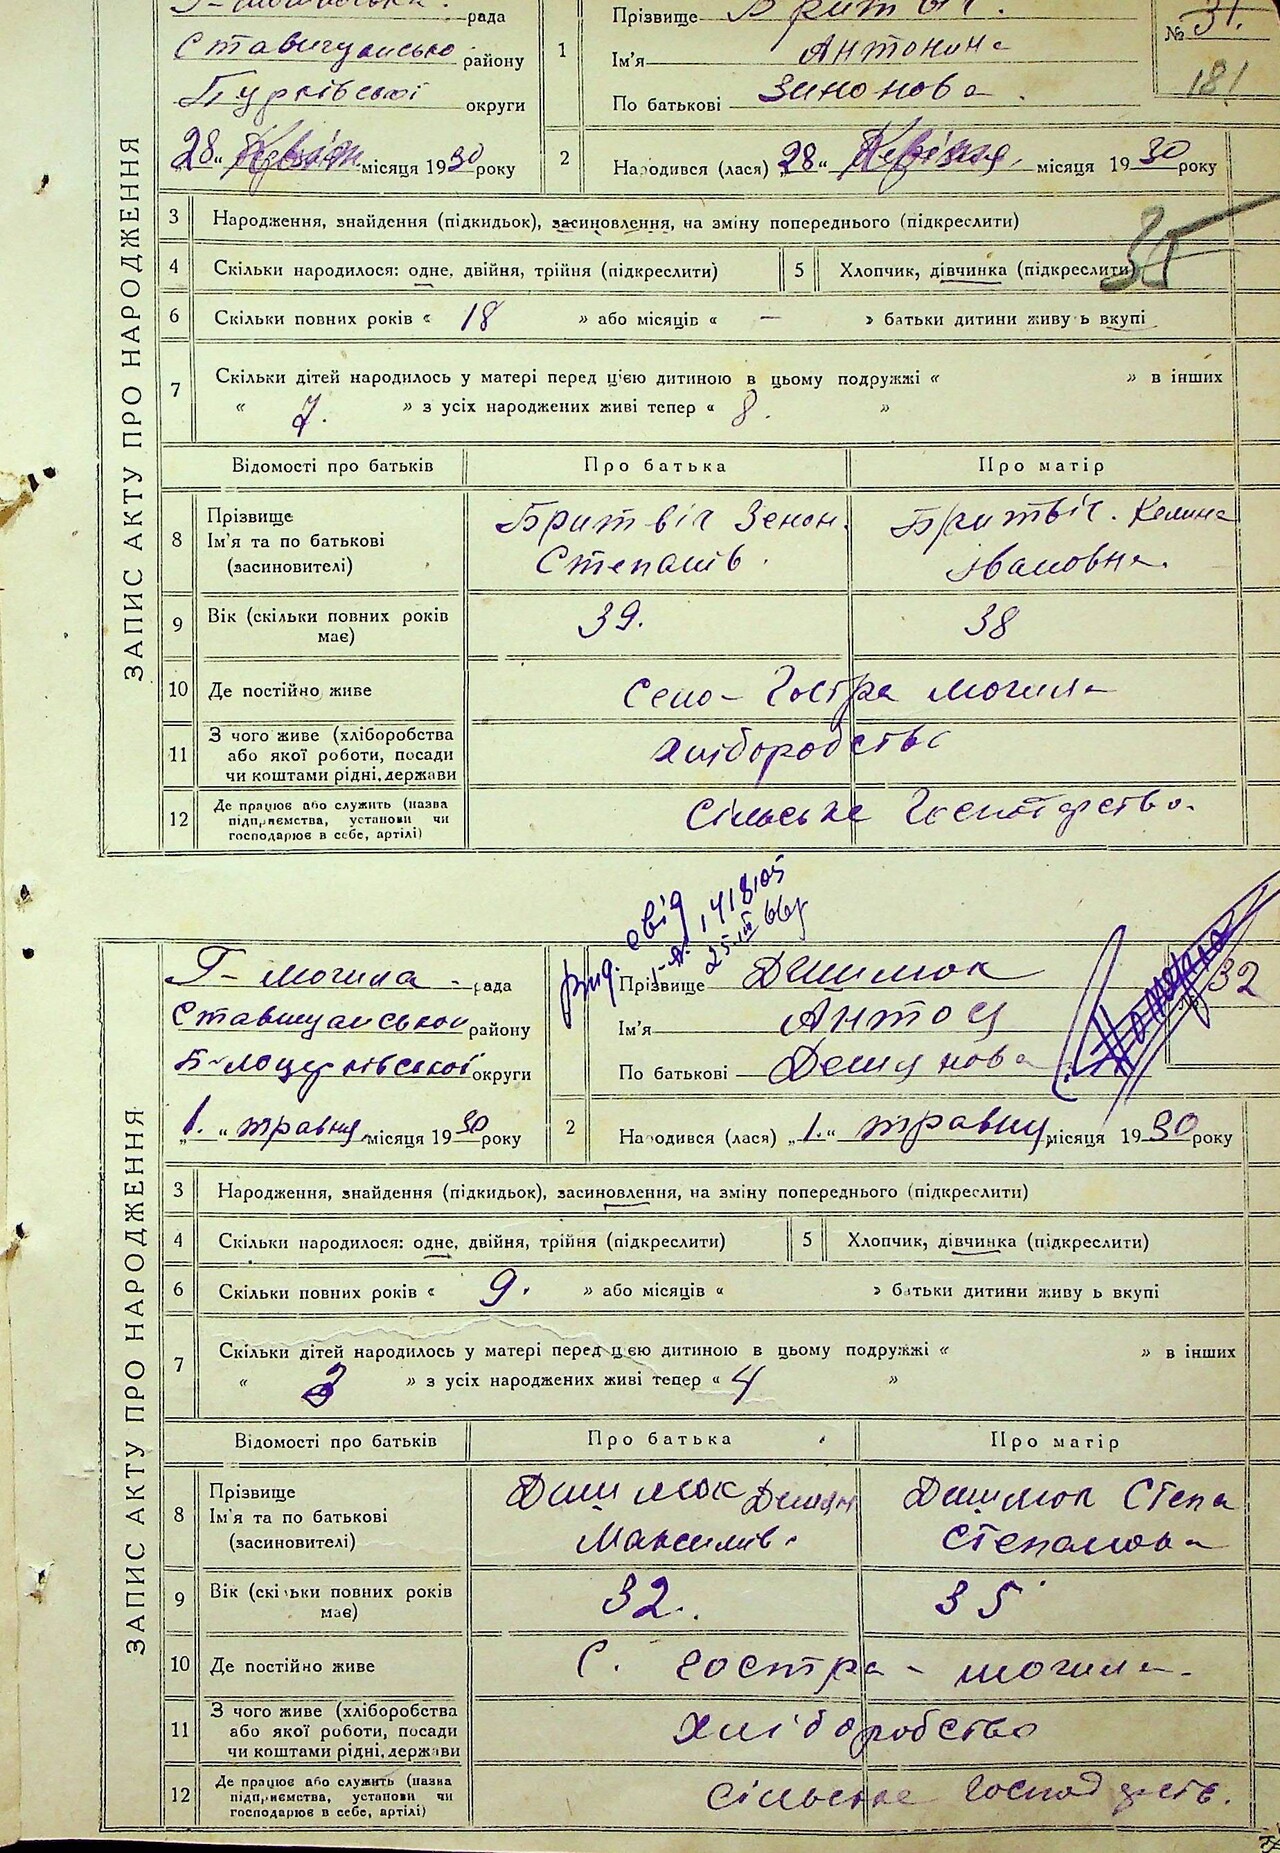 рада
Прізвище Бритвіч.
№ 31.
району
1
Ім'я Антоніна
181
округи
По батькові Зинонова
28 " Квітня місяця 1930 року
2
Народився (лася) „28 " Квітня місяця 1930 року
ЗАПИС АКТУ ПРО НАРОДЖЕННЯ
3 Народження, знайдення (підкидьок), засиновлення, на зміну попереднього (підкреслити)
35
4 Скільки народилося: одне, двійня, трійня (підкреслити)
5 Хлопчик, дівчинка (підкреслити)
6 Скільки повних років « 18 » або місяців « — » батьки дитини живуть вкупі
7 Скільки дітей народилось у матері перед цією дитиною в цьому подружжі « » в інших
« 7. » з усіх народжених живі тепер « 8. »
Відомості про батьків
Про батька
Про матір
8 Прізвище
Ім'я та по батькові
(засиновителі)
Бритвіч Зенон
Степанів.
Бритвіч. Келина
Івановна.
9 Вік (скільки повних років
має)
39.
38
10 Де постійно живе
Село - Гостра могила
11 З чого живе (хліборобства
або якої роботи, посади
чи коштами рідні, держави
хліборобство
12 Де працює або служить (назва
підприємства, установи чи
господарює в себе, артілі)
Сільське Господарство.
свід
1-А. 141805
25-III 66р
Г- Могила рада
Прізвище
№ 32
Ставищанської району
Ім'я
Білоцерківської округи
По батькові
„1. " травня місяця 1930 року
2
Народився (лася) „1. " травня місяця 1930 року
ЗАПИС АКТУ ПРО НАРОДЖЕННЯ
3 Народження, знайдення (підкидьок), засиновлення, на зміну попереднього (підкреслити)
4 Скільки народилося: одне, двійня, трійня (підкреслити)
5 Хлопчик, дівчинка (підкреслити)
6 Скільки повних років « 9. » або місяців « » батьки дитини живуть вкупі
7 Скільки дітей народилось у матері перед цією дитиною в цьому подружжі « » в інших
« 3 » з усіх народжених живі тепер « 4 »
Відомості про батьків
Про батька
Про матір
8 Прізвище
Ім'я та по батькові
(засиновителі)
Максимів.
Степа
Степановна
9 Вік (скільки повних років
має)
32.
35
10 Де постійно живе
С. Гостра - могила.
11 З чого живе (хліборобства
або якої роботи, посади
чи коштами рідні, держави
хліборобство
12 Де працює або служить (назва
підприємства, установи чи
господарює в себе, артілі)
Сільське Господарств.